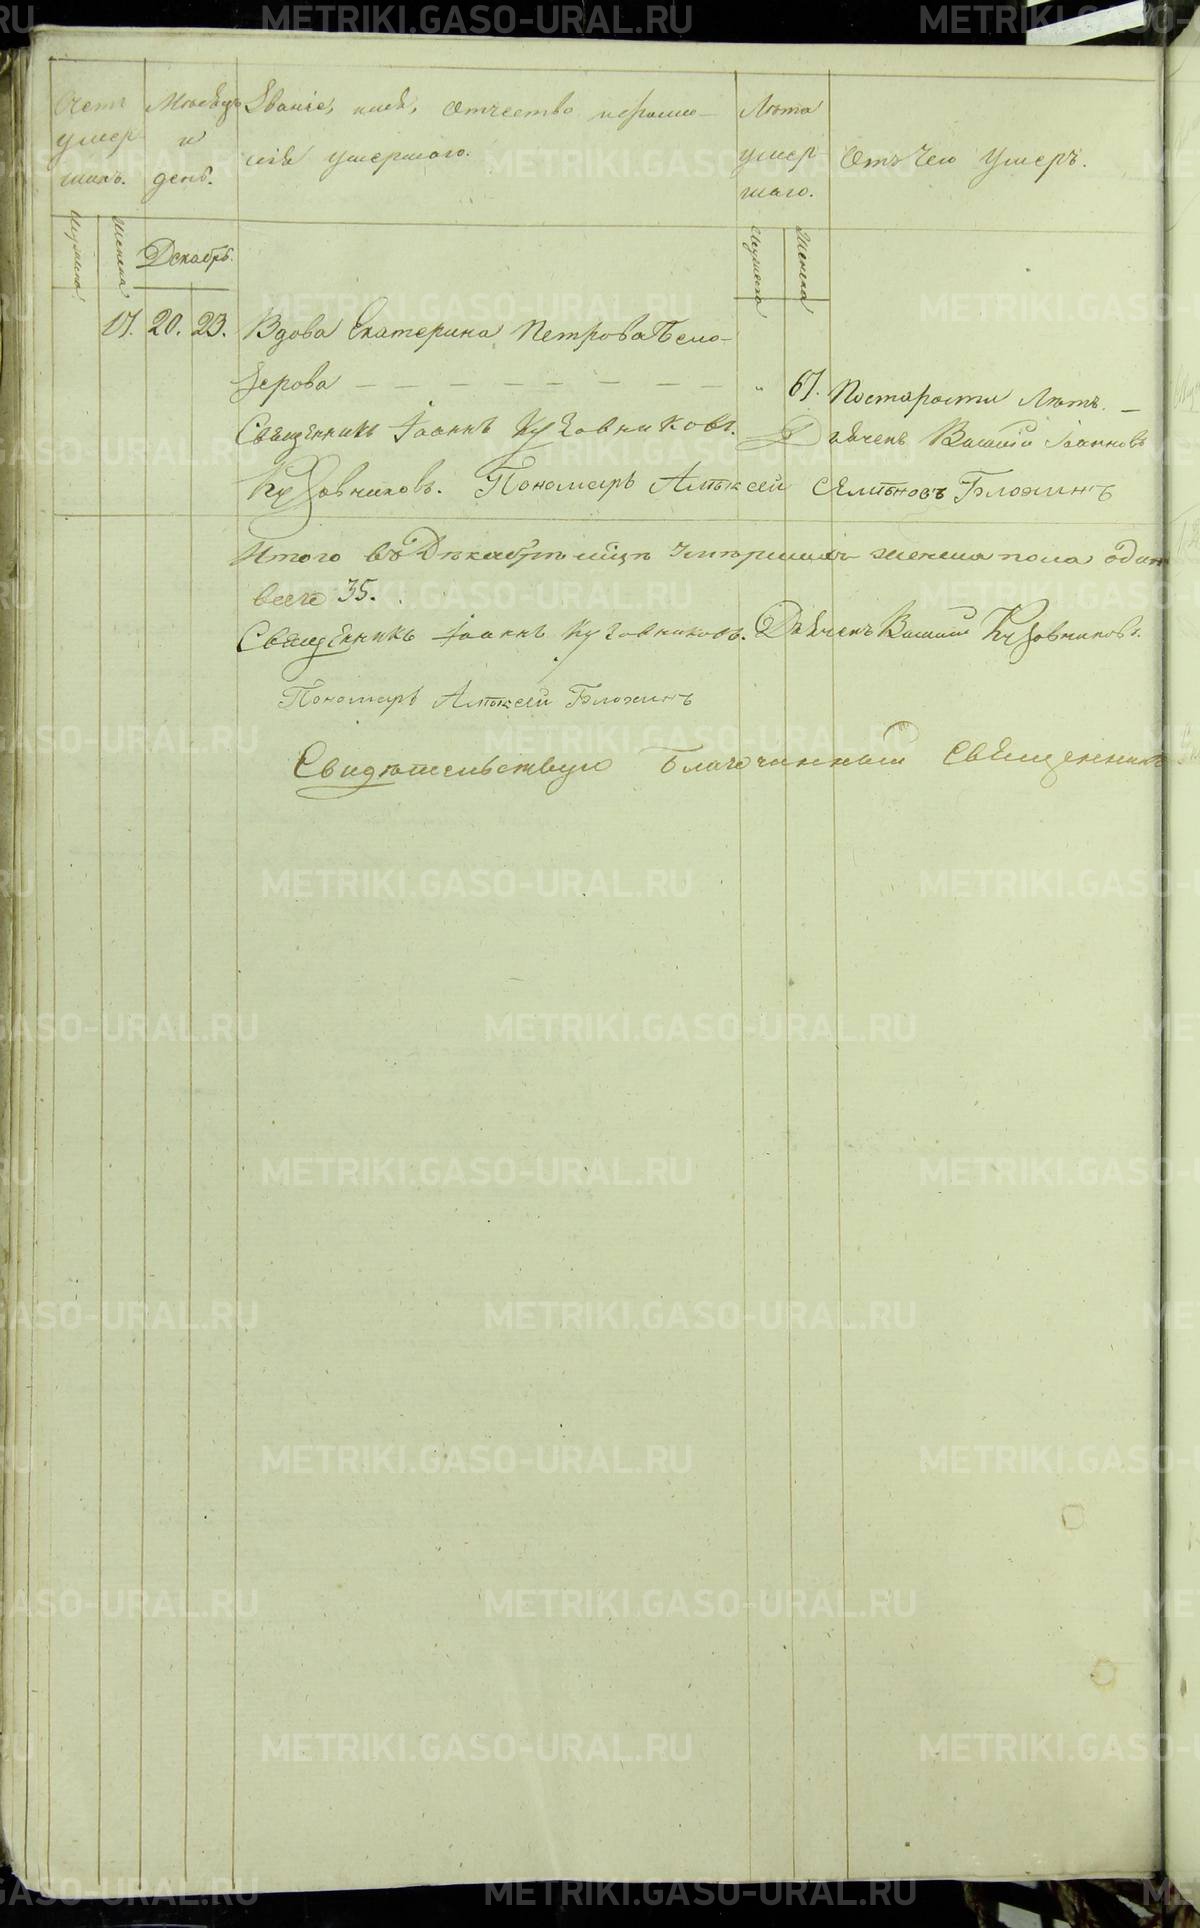 Счетъ умер шихъ.
Мѣсяцъ и день.
Званіе, имя, отчество и фами-
лія умершаго.
Лѣта умер шаго.
Отъ чего умеръ.
Мужска
Женска
Декабрь.
Мужска
Женска
17. 20. 23. Вдова Екатерина Петрова Бело-
зерова — — — — — — — — „ 67. По старости лѣтъ. —
Священникъ Іоаннъ Кузовниковъ. Діяченъ Васілій Іоанновъ
Кузовниковъ. Пономарь Алѣксей Семѣновъ Блохинъ
Итого въ Декабрѣ мцѣ умершихъ женска пола один
всего 35.
Священникъ Іоаннъ Кузовниковъ. Діяченъ Васілій Кузовниковъ.
Пономарь Алѣксей Блохинъ
Свидѣтельствую Благочинный Священникъ
METRIKI.GASO-URAL.RU